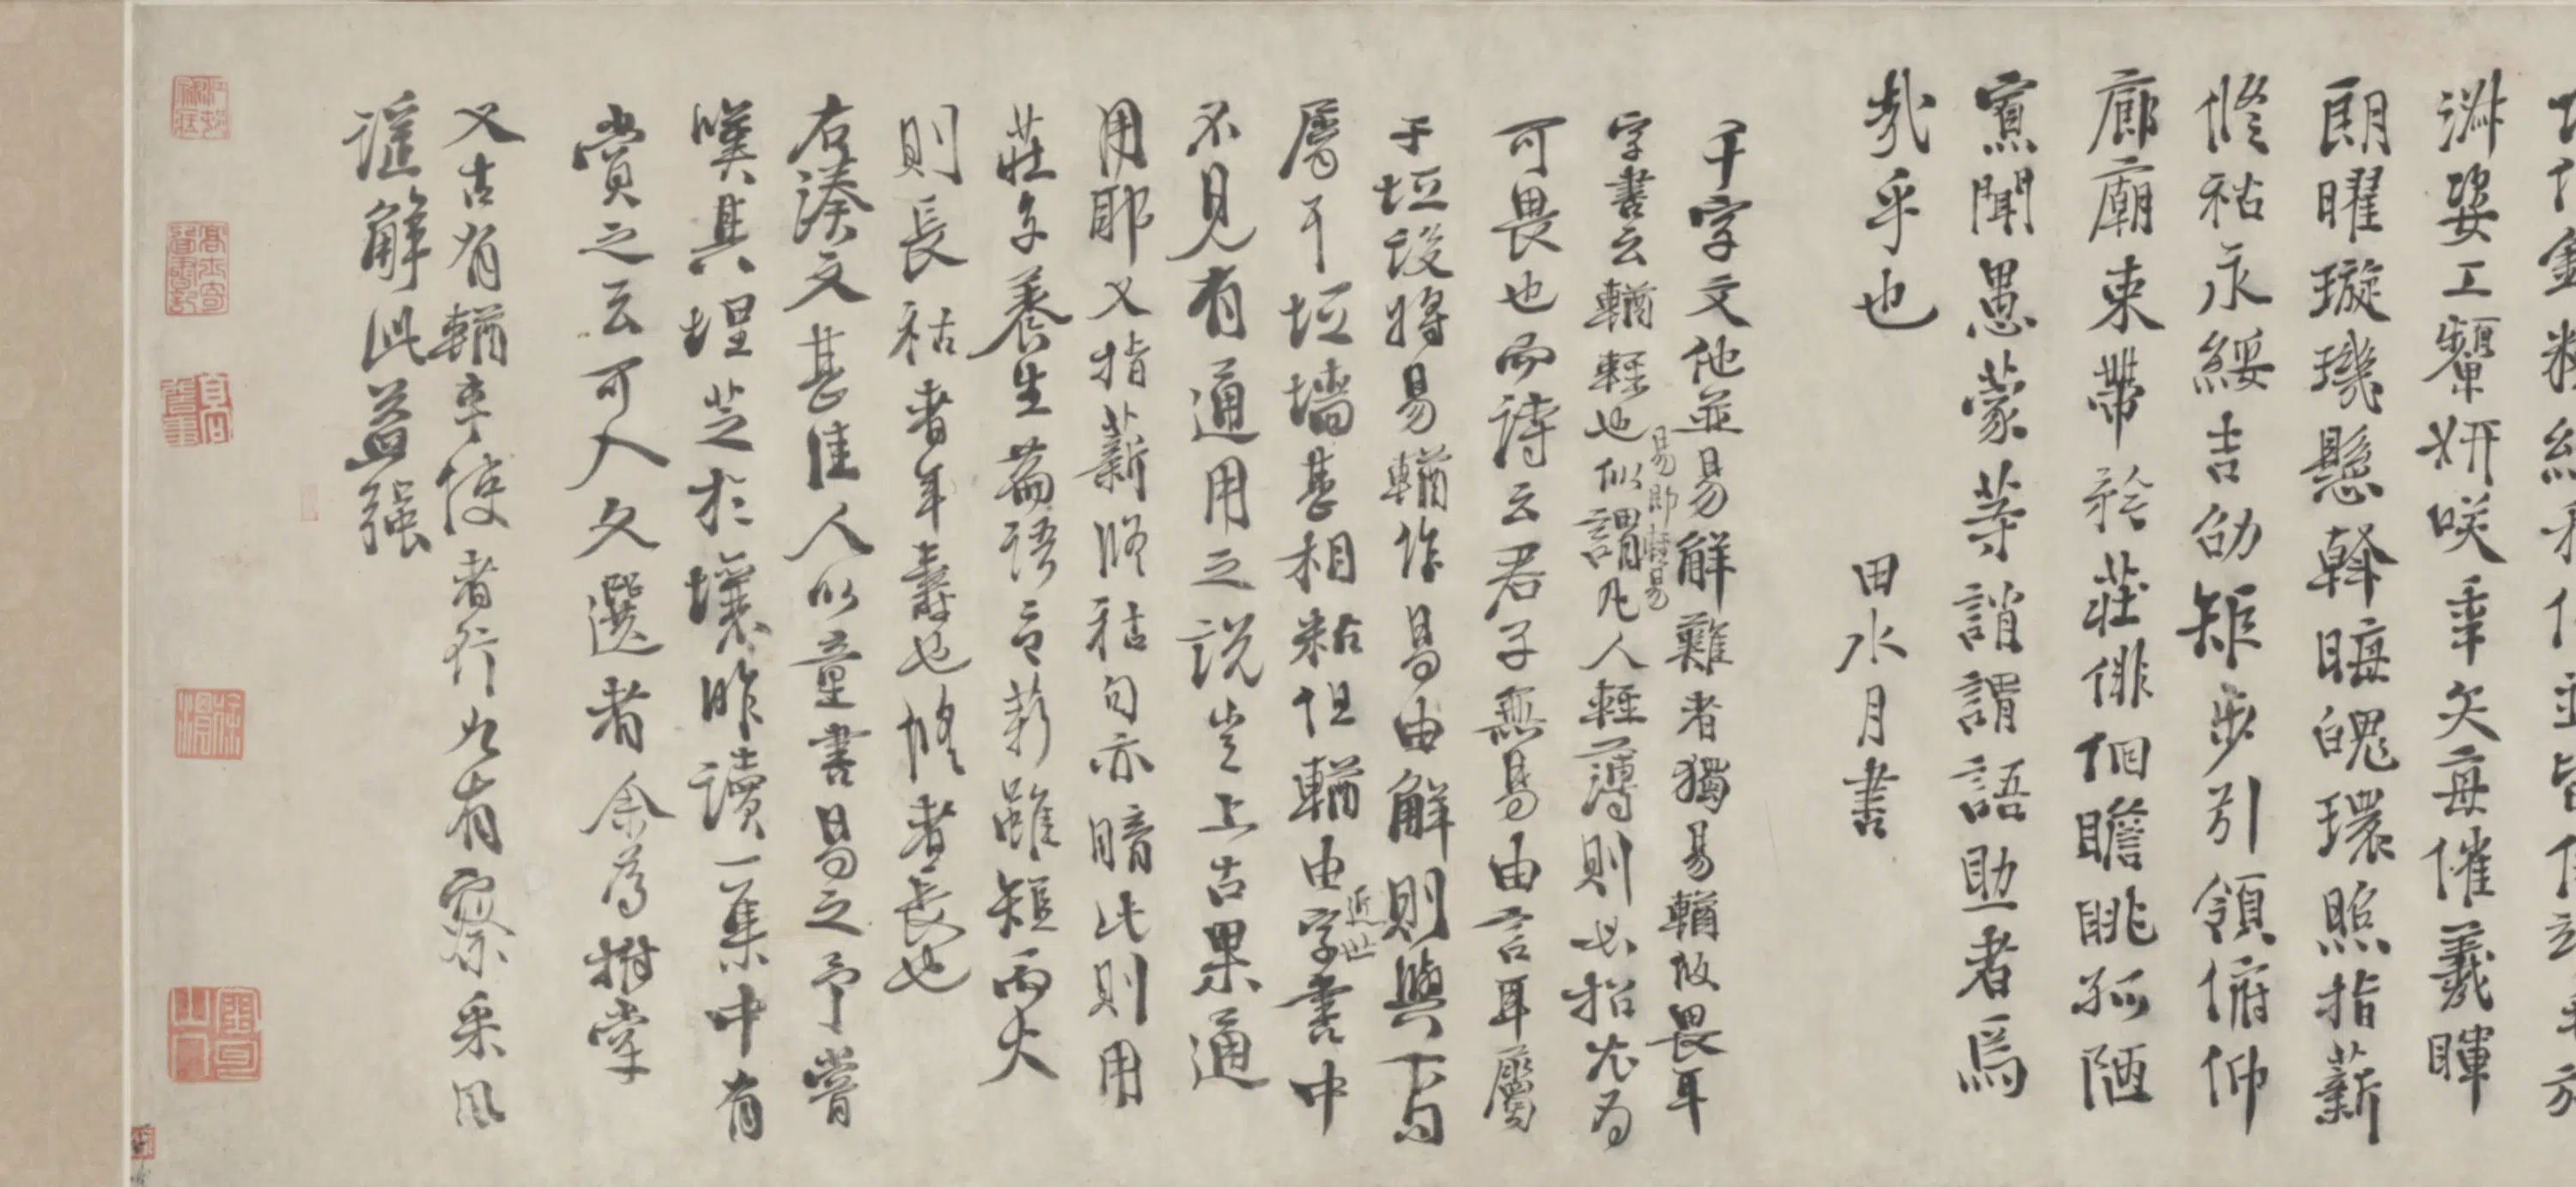 淑姿工顰妍咲年矢每催羲暉
朗曜璇璣懸斡晦魄環照指薪
脩祜永綏吉劭矩步引領俯仰
廊廟束帶矜莊徘徊瞻眺孤陋
寡聞愚蒙等誚謂語助者焉
哉乎也
田水月書
千字文他並易解難者獨易輶攸畏耳
字書云輶輕也似謂凡人輕薄則必招尤為
易即輕易
可畏也而詩云君子無易由言耳屬
于垣設將易輶作易由解則與下句
屬于垣墻甚相粘但輶由字書中
近世
不見有通用之說豈上古果通
用耶又指薪脩祜句亦暗比則用
莊子養生篇語言薪雖短而火
則長祜者年壽也脩者長也
右湊文甚佳人以童書易之予嘗
嘆其埋芝於壤昨讀一集中有
賞之云可入文選者余為拊掌
又古有輶車使者行九有察采風
謠解此益強